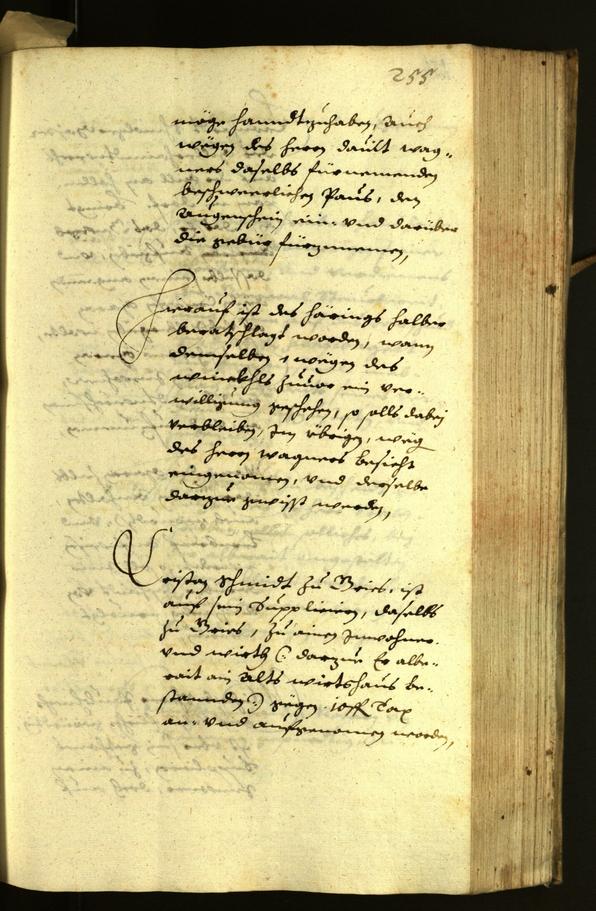 255
möge handtzuhaben, Auch
wegen des herrn dauilt wag¬
ners daselbs fürnemenden
beschwerlichen Paus, den
Augenschein ein- vnd darüber
die gebür fürzunemen,
Hierauf ist des härings halber
beratschlagt worden, wann
demselben, wegen des
winckhls zuuor ein ver¬
willigung geschehen, so solls dabej
verbleiben, Im übrigen, weg
des herrn wagners besicht
eingenomen, vnd derselbe
darzue gwisst werden,
Cristan Schmidt zu Gries, ist
auf sein Suppliciern, daselbs
zu Gries, zu ainen Inwohner
vnd wirth (: darzue Er albe¬
rait ain Alts wirtshaus be¬
standen :) gegen 10 ff Tax
an- vnd aufgenomen worden,